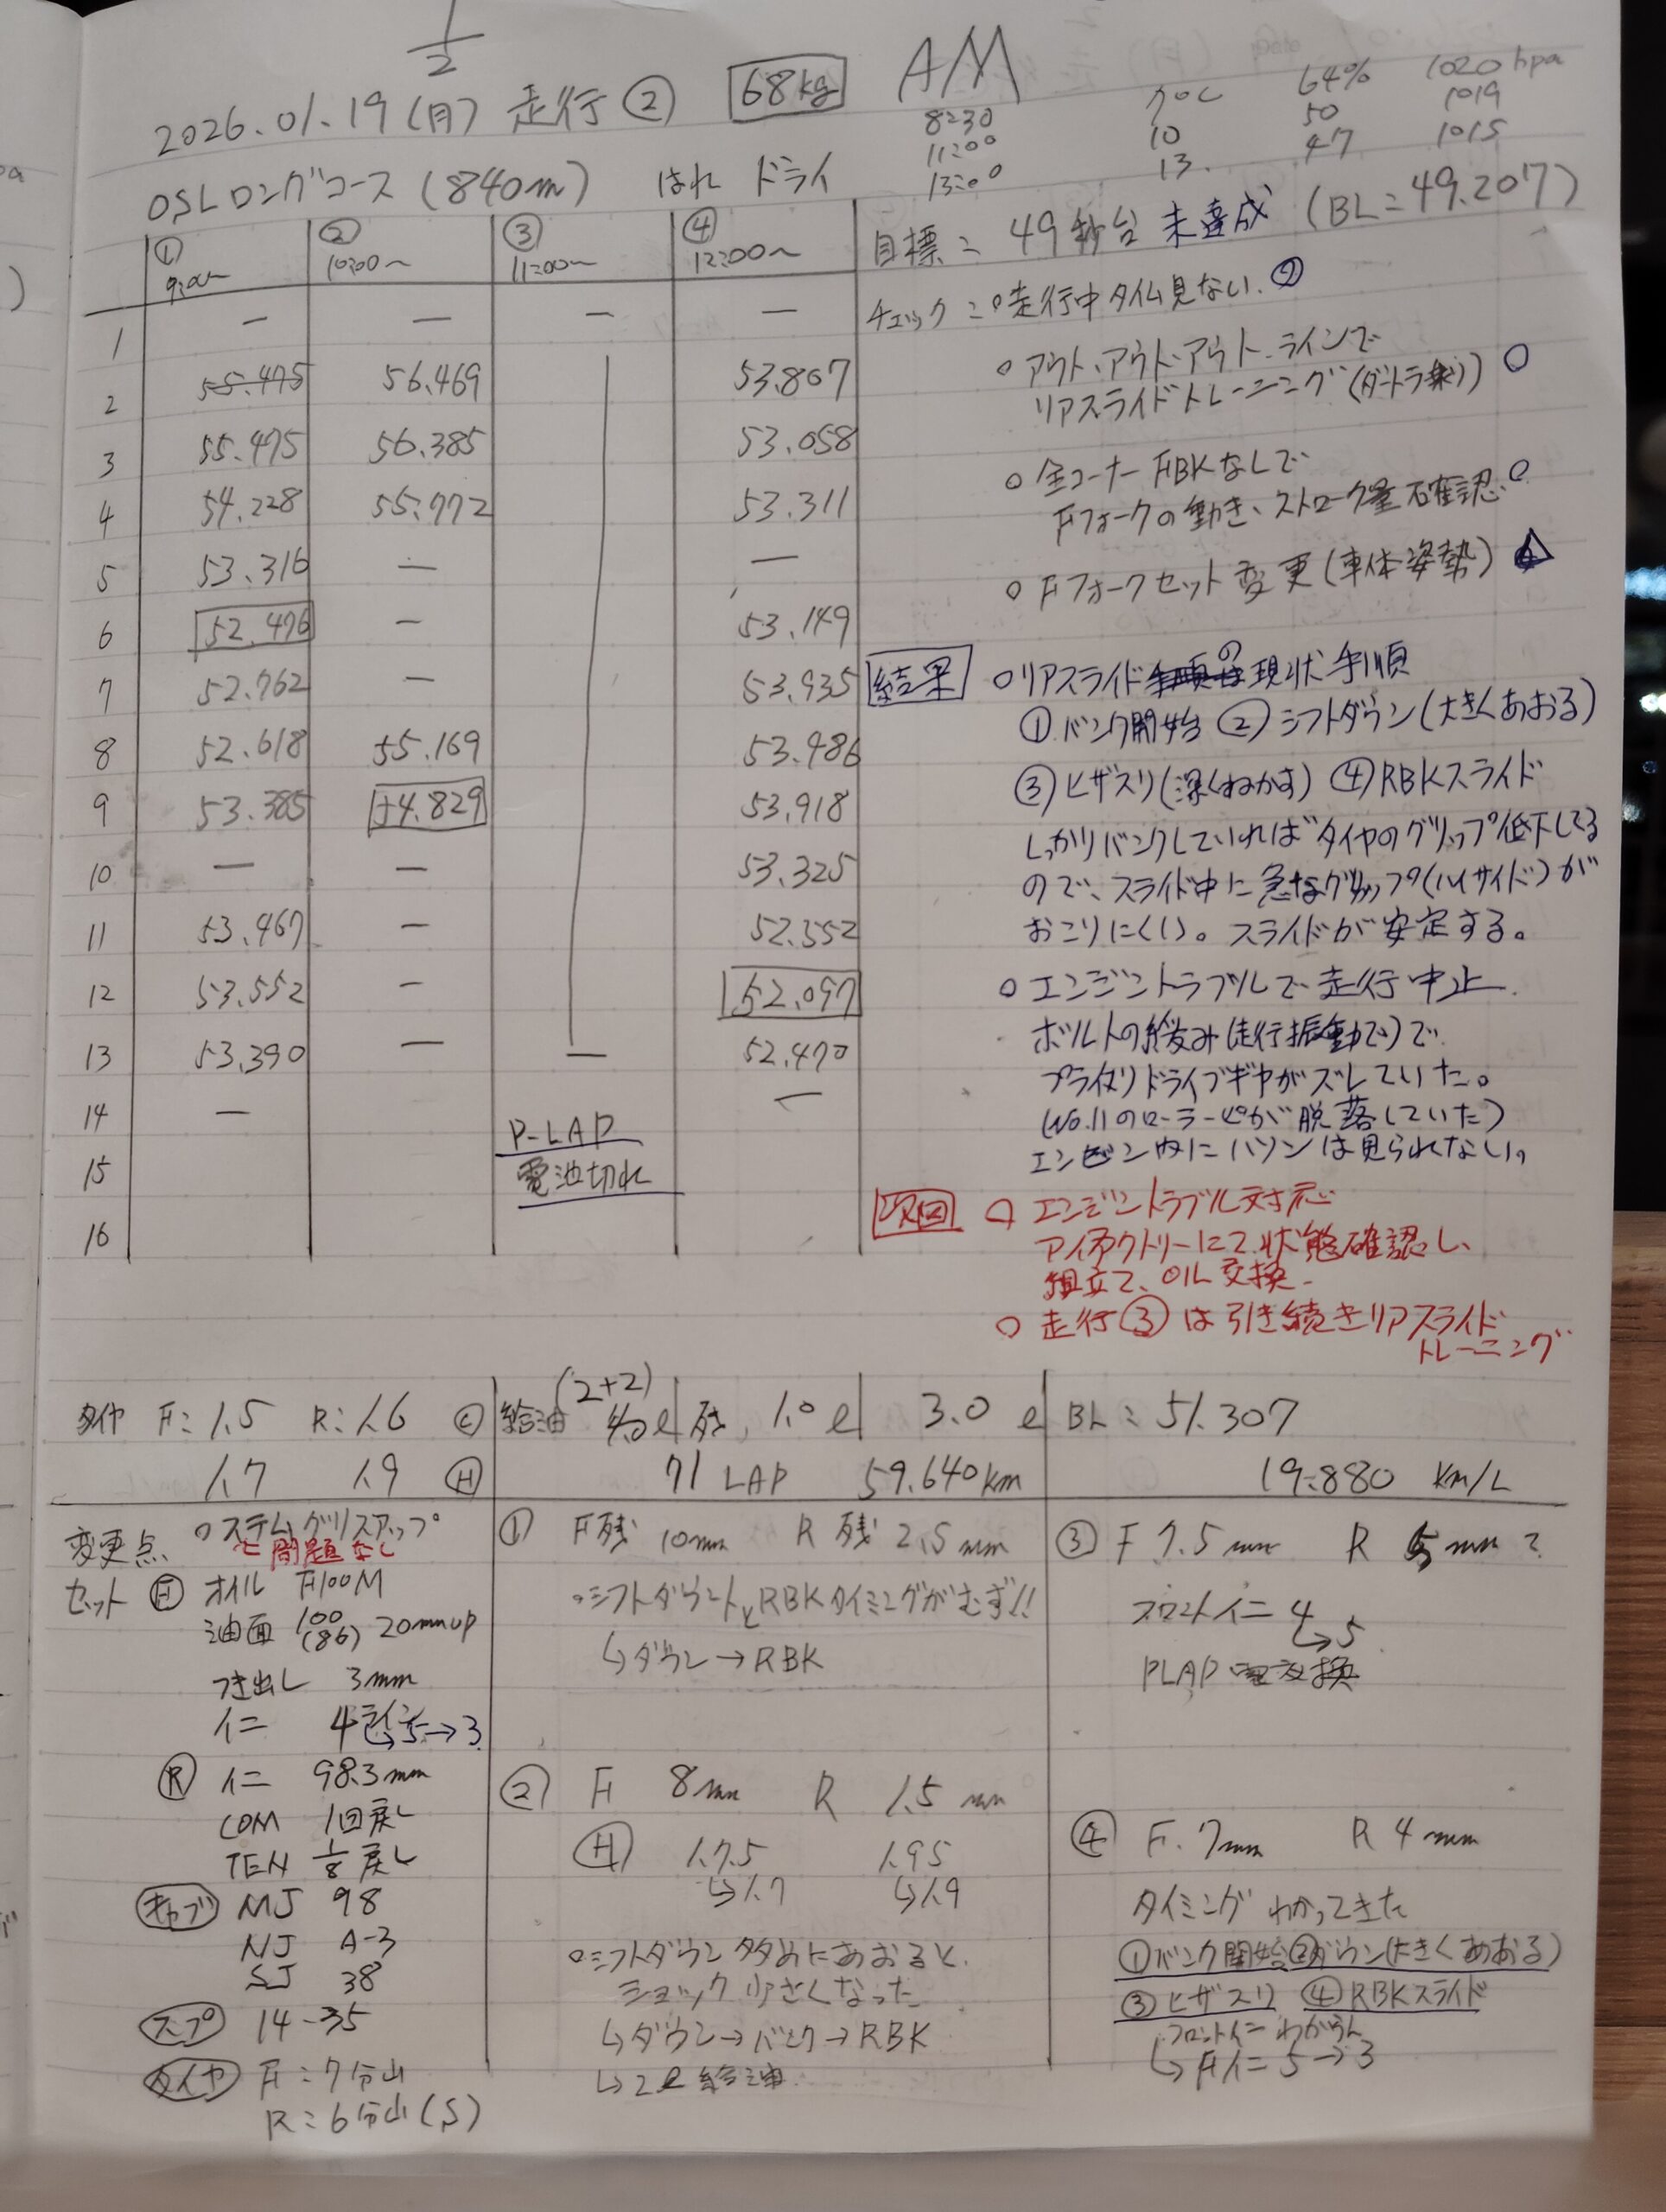 1/2
2026.01.19(月) 走行② 68kg AM
8:30 7℃ 64% 1020hpa
11:00 10 50 1019
13:00 13. 47 1015
OSLロングコース(840m) はれ ドライ
① 9:00〜 ② 10:00〜 ③ 11:00〜 ④ 12:00〜
1 — — — —
2 55.475 56.469 53.807
3 55.475 56.385 53.058
4 54.228 55.772 53.311
5 53.316 — —
6 52.476 — 53.149
7 52.762 — 53.935
8 52.618 55.169 53.486
9 53.385 54.829 53.918
10 — — 53.325
11 53.467 — 52.552
12 53.552 — 52.097
13 53.390 — — 52.470
14 — —
15
16
P-LAP
電池切れ
目標:49秒台 未達成 (BL:49.207)
チェック:○走行中タイム見ない.
○アウト、アウト・アウト・ラインで
リアスライドトレーニング(ダートラ乗り) ○
○全コーナーFBKなしで
Fフォークの動き、ストローク量確認. ○
○Fフォークセット変更(車体姿勢) △
結果 ○リアスライドの現状手順
①バンク開始 ②シフトダウン(大きくあおる)
③ヒザスリ(深くねかす) ④RBKスライド
しっかりバンクしていればタイヤのグリップ低下してる
ので、スライド中に急なグリップ(ハイサイド)が
おこりにくい。スライドが安定する。
○エンジントラブルで走行中止.
ボルトの緩み(走行振動で)で
プライマリドライブギヤがズレていた。
(No.11のローラーピンが脱落していた)
エンジン内にハソンは見られない。
次回 ○エンジントラブル対応
アイファクトリーにて状態確認し、
組立て、OIL交換.
○走行③は引き続きリアスライド
トレーニング
タイヤ F:1.5 R:1.6 Ⓒ
1.7 1.9 Ⓗ
給油 (2+2) 4.0ℓ 残 1.0ℓ 3.0ℓ
71 LAP 59.640km
BL:51.307
19.880 km/L
変更点 ○ステムグリスアップ
問題なし
セット Ⓕ オイル F100M
油面 100 (86) 20mmup
つき出し 3mm
イニ 4ライン
↳5→3
Ⓡ イニ 98.3mm
COM 1回戻し
TEN 1/8戻し
キャブ MJ 98
NJ A-3
SJ 38
スプ 14-35
タイヤ F:7分山
R:6分山(S)
① F残 10mm R残 2.5mm
○シフトダウンとRBKタイミングがむずい!!
↳ダウン→RBK
② F 8mm R 1.5mm
Ⓗ 1.75 1.95
↳1.7 ↳1.9
○シフトダウン多めにあおると、
ショック小さくなった
↳ダウン→バンク→RBK
↳2ℓ給油.
③ F 7.5mm R 5mm?
フロントイニ 4
↳5
PLAP電交換
④ F.7mm R 4mm
タイミングわかってきた
①バンク開始②ダウン(大きくあおる)
③ヒザスリ ④RBKスライド
フロントイニわからん
↳Fイニ 5→3